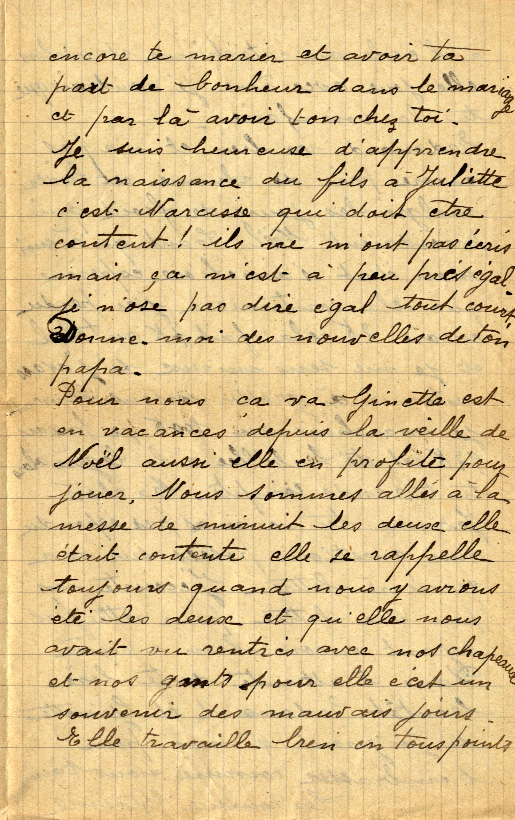 encore te marier et avoir ta
part de bonheur dans le mariage
et par là avoir ton chez toi.
Je suis heureuse d'apprendre
la naissance du fils à Juliette
c'est Narcisse qui doit etre
content! ils ne m'ont pas écris
mais ça m'est à peu près égal
je n'ose pas dire egal tout court
Donne-moi des nouvelles de ton
papa.
Pour nous ça va Ginette est
en vacances depuis la veille de
Noël aussi elle en profite pour
jouer, Nous sommes allés à la
messe de minuit les deux elle
était contente elle se rappelle
toujours quand nous y avions
été les deux et qu'elle nous
avait vu rentrés avec nos chapeaux
et nos gants pour elle c'est un
souvenir des mauvais jours.
Elle travaille bien en tous points